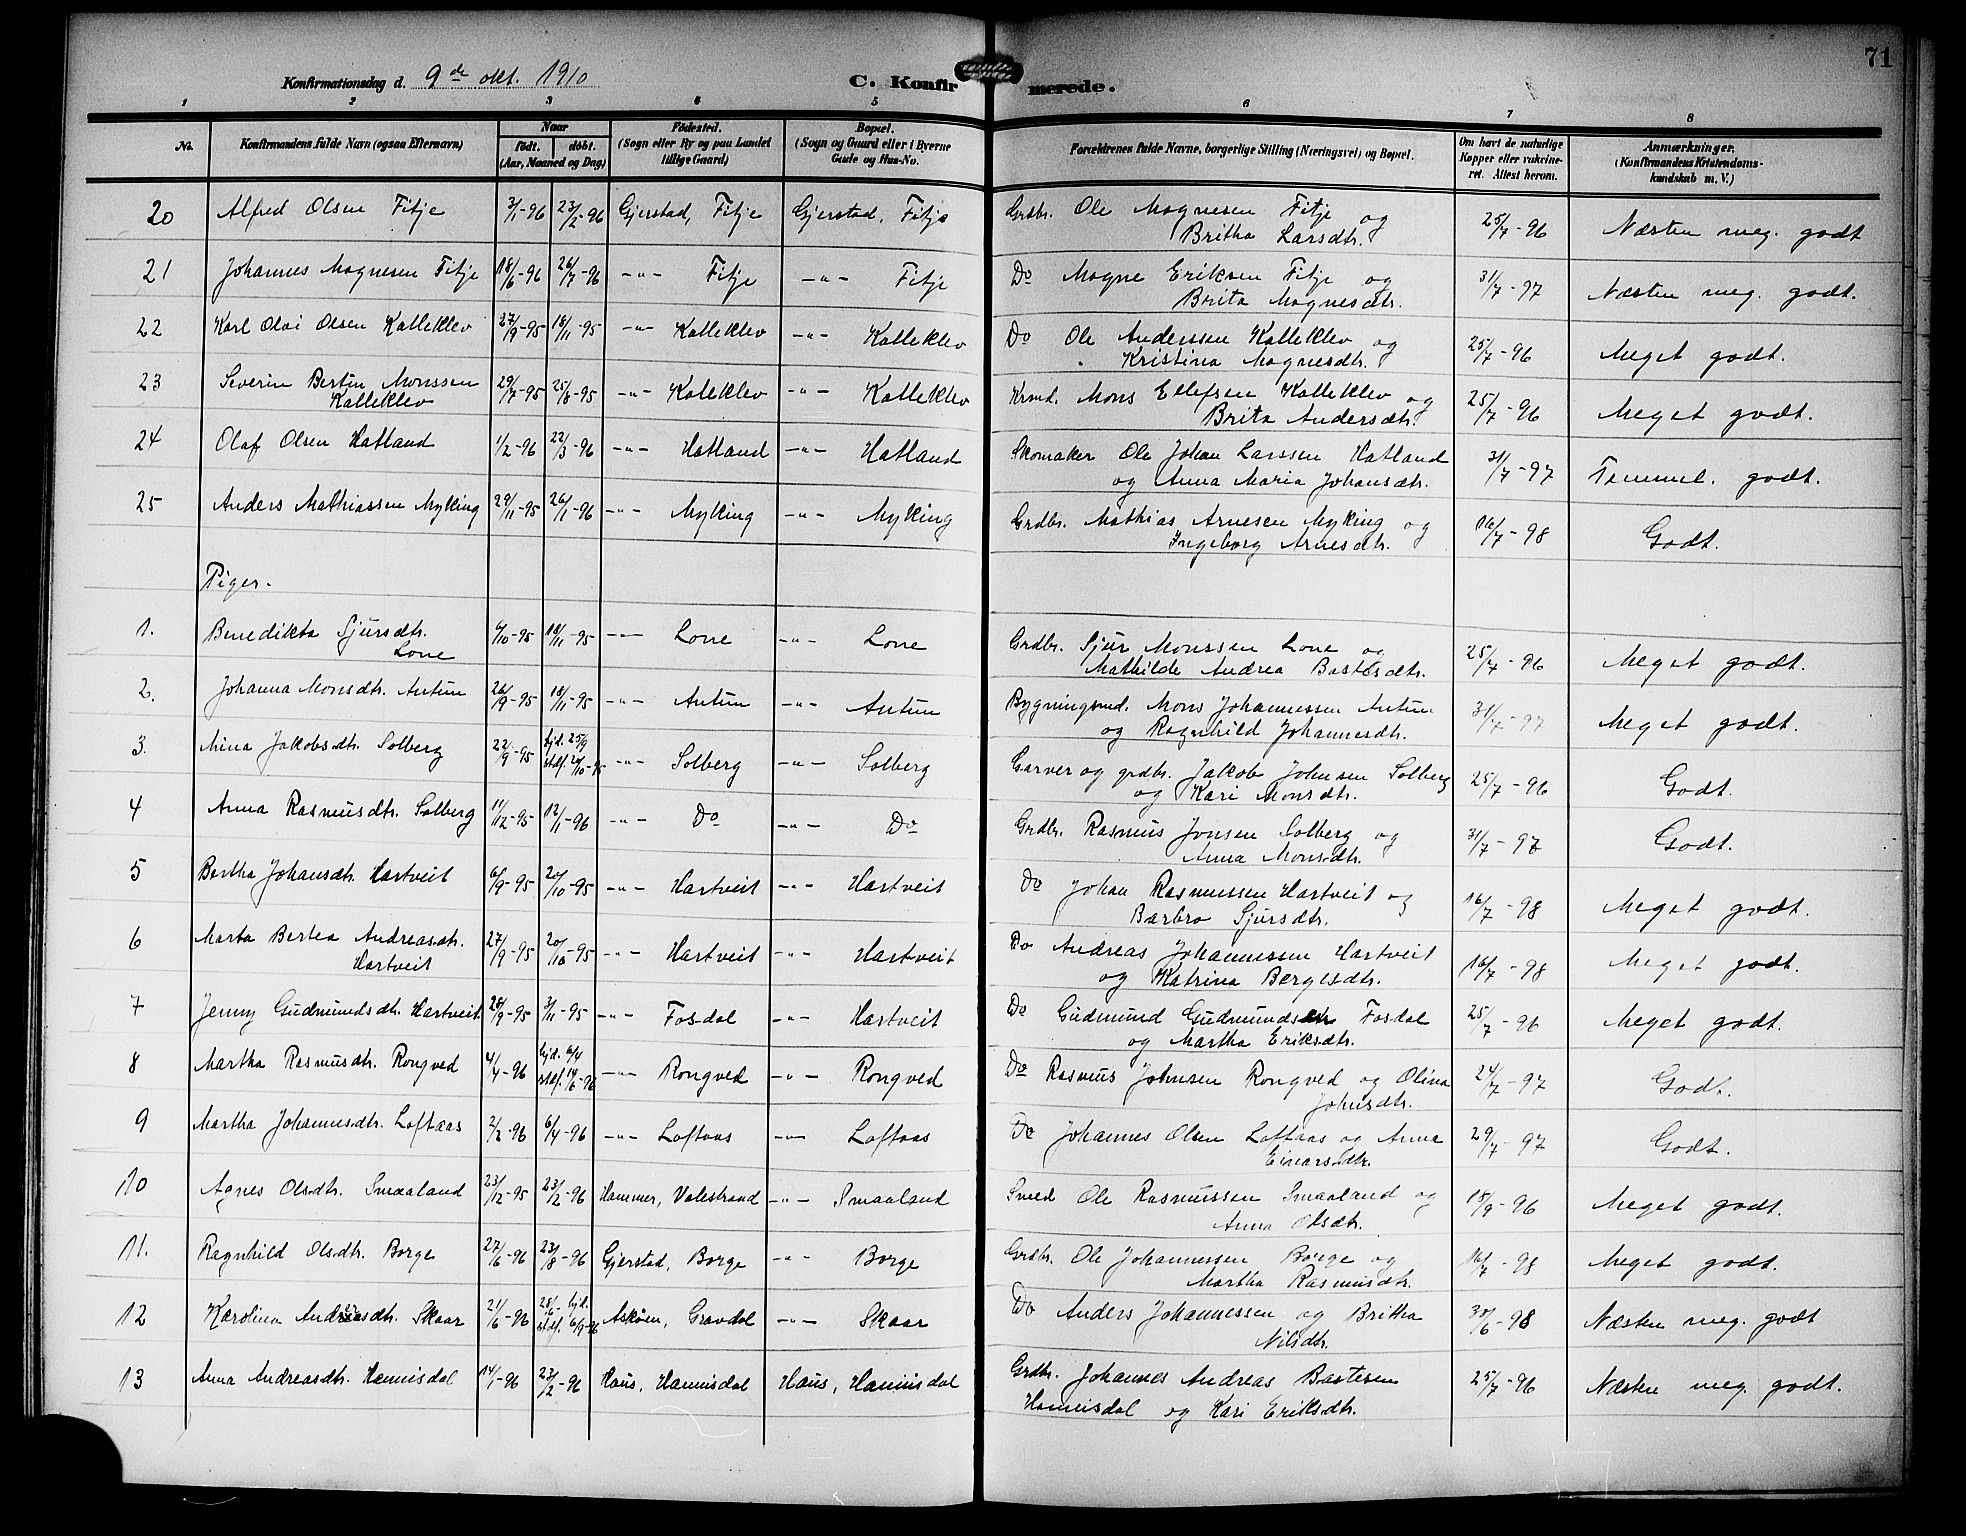 71
Konfirmationsdag d. 9de okt. 1910
C. Konfirmerede.
1 2 3 4 5 6 7 8
No. Konfirmandens fulde Navn (ogsaa Efternavn) Naar født. døbt. (Aar, Maaned og Dag) Fødested. (Sogn eller By og paa Landet tillige Gaard) Bopæl. (Sogn og Gaard eller i Byerne Gade og Hus-No. Forældrenes fulde Navne, borgerlige Stilling (Næringsvei) og Bopæl. Om havt de naturlige Kopper eller vakcineret. Attest herom. Anmærkninger. (Konfirmandens Kristendomskundskab m. V.)
20 Alfred Olsen Fitje 3/1-96 23/2-96 Gjerstad, Fitje Gjerstad, Fitje Grdbr. Ole Mognesen Fitje og Britha Larsdtr. 25/7-96 Næsten meg. godt
21 Johannes Mognesen Fitje 18/6-96 26/7-96 -"- Fitje -"- Fitje Do Mogne Eriksen Fitje og Brita Mognesdtr. 31/7-97 Næsten meg. godt.
22 Karl Olai Olsen Kalleklev 27/9-95 18/11-95 -"- Kalleklev -"- Kalleklev Do Ole Anderssen Kalleklev og Kristina Mognesdtr. 25/7-96 Meget godt.
23 Severin Bertin Monssen Kalleklev 29/7-95 25/8-95 -"- Kaleklev -"- Kalleklev Krmd. Mons Ellefsen Kalleklev og Brita Andersdtr. 25/7-96 Meget godt.
24 Olaf Olsen Hatland 1/2-96 22/3-96 -"- Hatland -"- Hatland Skomaker Ole Johan Larssen Hatland og Anna Maria Johansdtr. 31/7-97 Temmel. godt.
25 Anders Mathiassen Myking 29/11-95 26/1-96 -"- Myking -"- Myking Grdbr. Mathias Arnesen Myking og Ingeborg Arnesdtr. 16/7-98 Godt.
Piger.
1. Benedikta Sjursdtr. Lone 6/10-95 18/11-95 -"- Lone -"- Lone Grdbr. Sjur Monssen Lone og Mathilde Andrea Bastesdtr. 25/7-96 Meget godt.
2. Johanna Monsdtr. Antun 26/9-95 18/11-95 -"- Antun -"- Antun Bygningsmd. Mons Johannessen Antun og Ragnhild Johannesdtr. 31/7-97 Meget godt.
3. Mina Jakobsdtr. Solberg 22/9-95 hjd. 25/9 stdf. 20/10-95 -"- Solberg -"- Solberg Garver og grdbr. Jakob Johnsen Solberg og Kari Monsdtr. 25/7-96 Godt.
4 Anna Rasmusdtr. Solberg 11/12-95 12/1-96 -"- Do -"- Do Grdbr. Rasmus Jonsen Solberg og Anna Monsdtr. 31/7-97 Godt.
5 Bertha Johansdtr. Hartveit 6/9-95 20/10-95 -"- Hartveit -"- Hartveit Do Johan Rasmussen Hartveit og Barbro Sjursdtr. 16/7-98 Meget godt.
6 Marta Bertea Andreasdtr. Hartveit 27/9-95 20/10-95 -"- Hartveit -"- Hartveit Do Andreas Johannessen Hartveit og Katrina Bergesdtr. 16/7-98 Meget godt.
7 Jenny Gudmundsdtr. Hartveit 28/9-95 3/11-95 -"- Fosdal -"- Hartveit Do Gudmund Gudmundsen Fosdal og Martha Eriksdtr. 25/7-96 Meget godt.
8 Martha Rasmusdtr. Rongved 4/4-96 hjd. 6/4 stdf. 14/6-96 -"- Rongved -"- Rongved Do Rasmus Johnsen Rongved og Olina Johnsdtr. 24/7-97 Godt.
9 Martha Johannesdtr. Loftaas 2/2-96 6/4-96 -"- Loftaas -"- Loftaas Do Johannes Olsen Loftaas og Anna Einarsdtr. 29/7-97 Godt.
10 Agnes Olsdtr. Smaaland 23/12-95 23/2-96 Hammer, Valestrand -"- Smaaland Smed Ole Rasmussen Smaaland og Anna Olsdtr. 18/9-96 Meget godt.
11. Ragnhild Olsdtr. Borge 27/6-96 23/8-96 Gjerstad, Borge -"- Borge Grdbr. Ole Johannessen Borge og Martha Rasmusdtr. 16/7-98 Meget godt.
12 Karolina Andreasdtr. Skaar 21/6-96 28/6- hjd. stdf. 6/9-96 Askøen, Gravdal -"- Skaar Do Anders Johannessen og Britha Nilsdtr. 30/6-98 Næsten meg. godt
13 Anna Andreasdtr. Hannisdal 14/1-96 23/2-96 Haus, Hannisdal Haus, Hannisdal Grdbr. Johannes Andreas Bastesen Hannisdal og Kari Eriksdtr. 25/7-96 Næsten meg. godt.